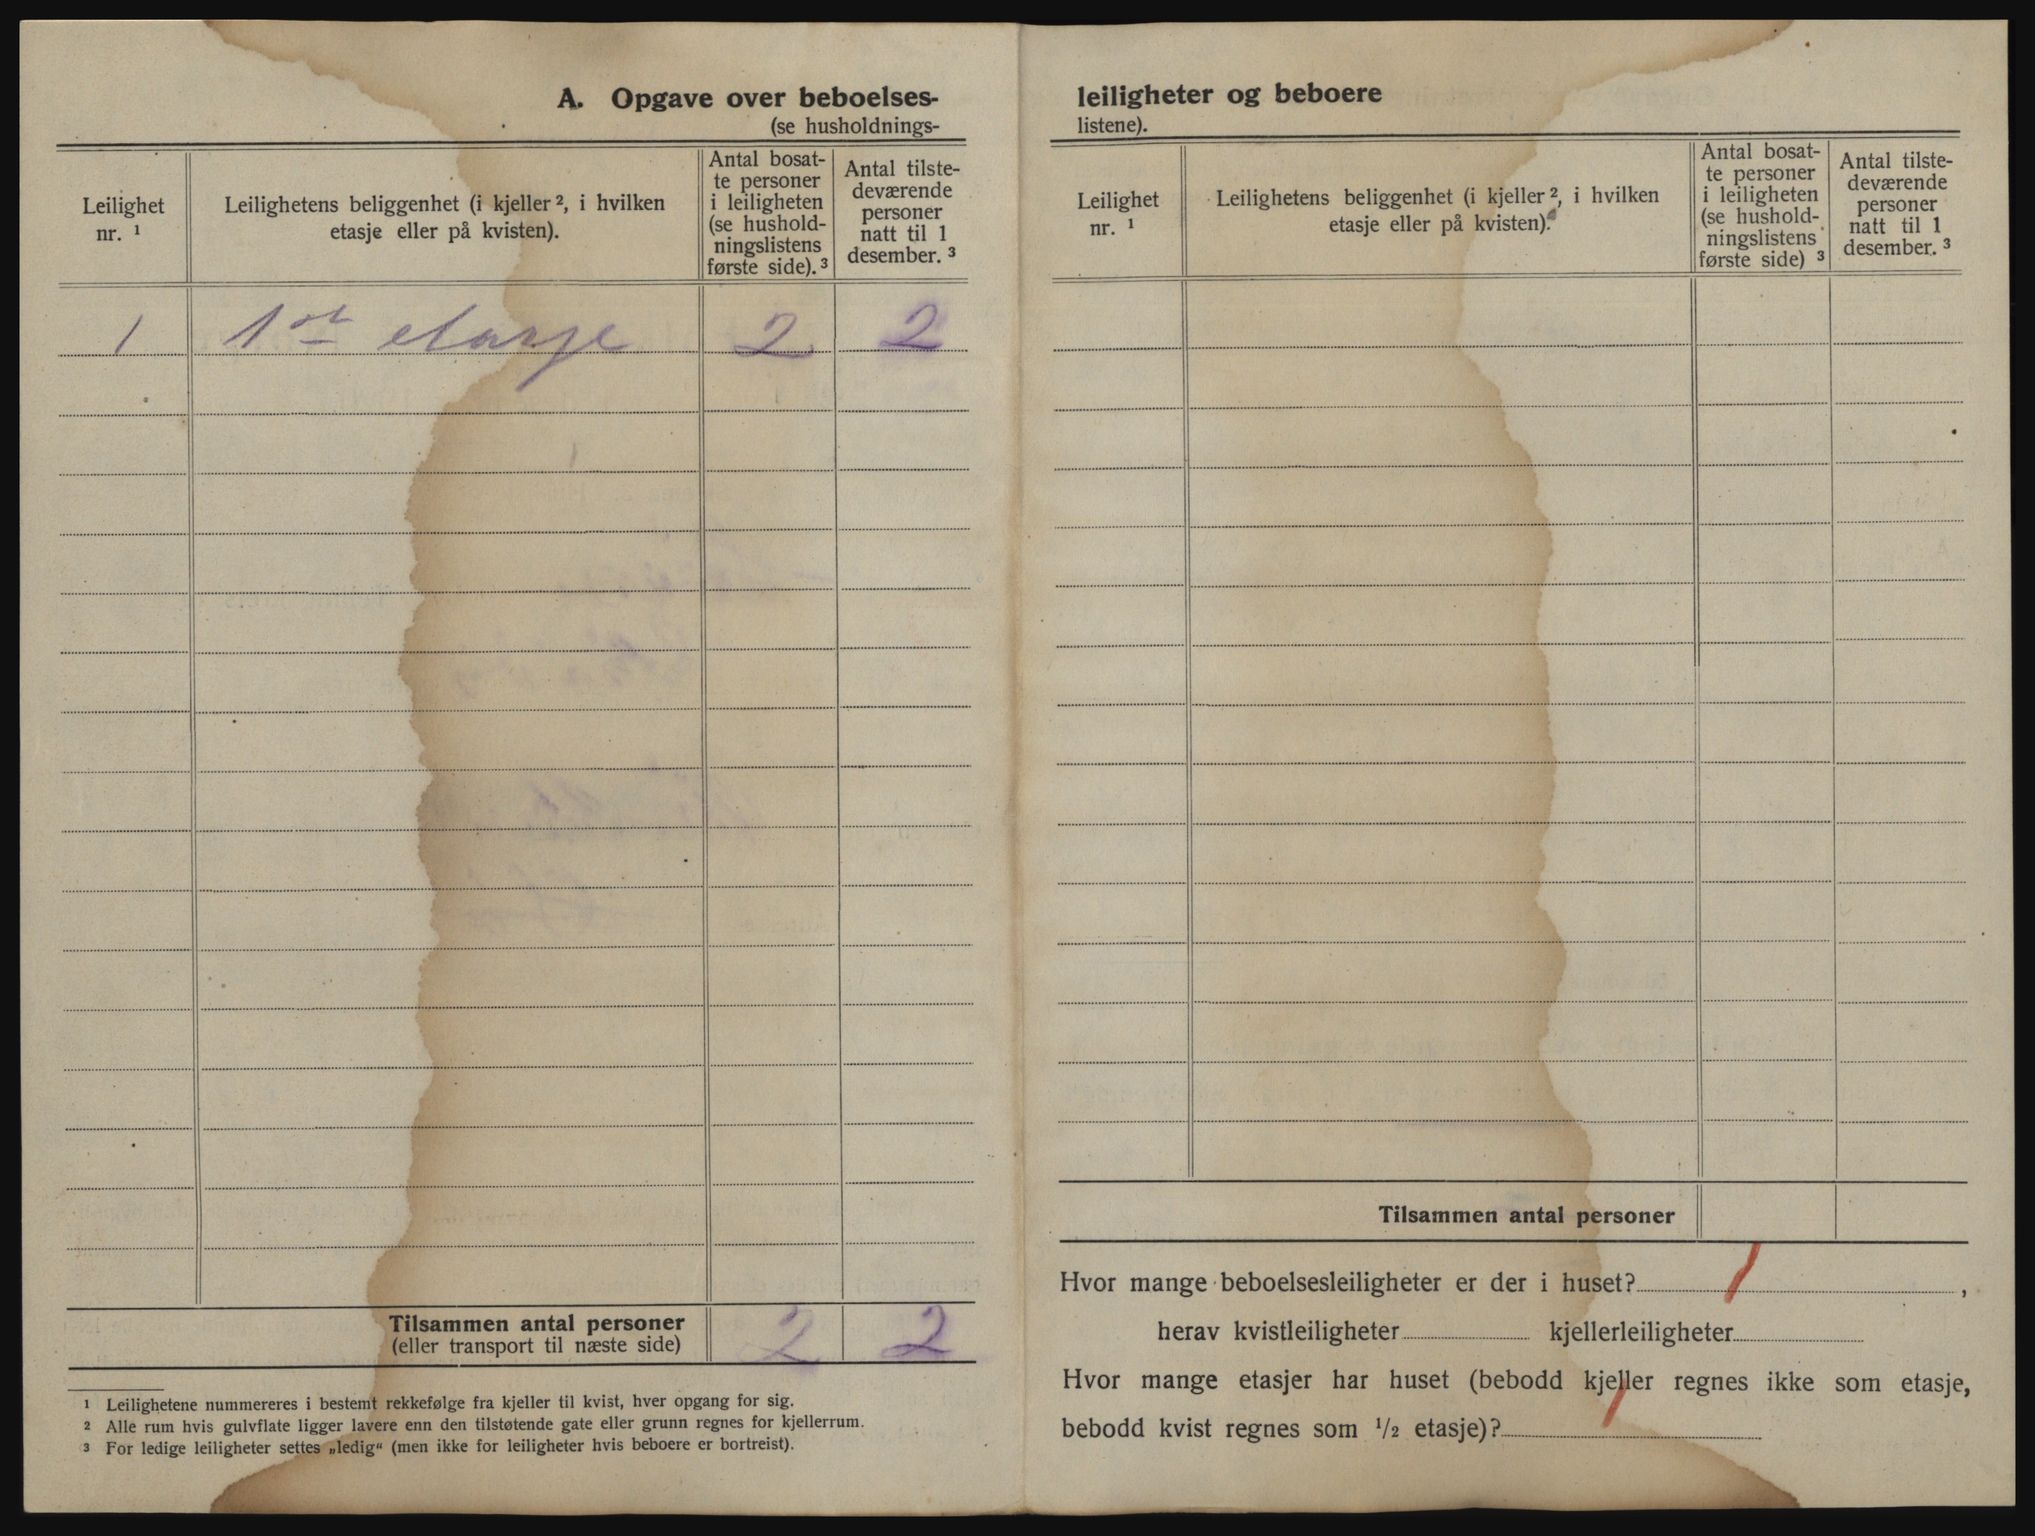 A. Opgave over beboelses-
(se husholdnings-
Leilighet
nr. ¹
Leilighetens beliggenhet (i kjeller ², i hvilken
etasje eller på kvisten).
Antal bosat-
te personer
i leiligheten
(se hushold-
ningslistens
første side). ³
Antal tilste-
deværende
personer
natt til 1
desember. ³
1 1st etasje 2 2
Tilsammen antal personer 2 2
(eller transport til næste side)
¹ Leilighetene nummereres i bestemt rekkefølge fra kjeller til kvist, hver opgang for sig.
² Alle rum hvis gulvflate ligger lavere enn den tilstøtende gate eller grunn regnes for kjellerrum.
³ For ledige leiligheter settes „ledig“ (men ikke for leiligheter hvis beboere er bortreist).
leiligheter og beboere
listene).
Leilighet
nr. ¹
Leilighetens beliggenhet (i kjeller ², i hvilken
etasje eller på kvisten).
Antal bosat-
te personer
i leiligheten
(se hushold-
ningslistens
første side) ³
Antal tilste-
deværende
personer
natt til 1
desember. ³
Tilsammen antal personer
Hvor mange beboelsesleiligheter er der i huset? 1 ,
herav kvistleiligheter kjellerleiligheter
Hvor mange etasjer har huset (bebodd kjeller regnes ikke som etasje,
bebodd kvist regnes som ½ etasje)? 1